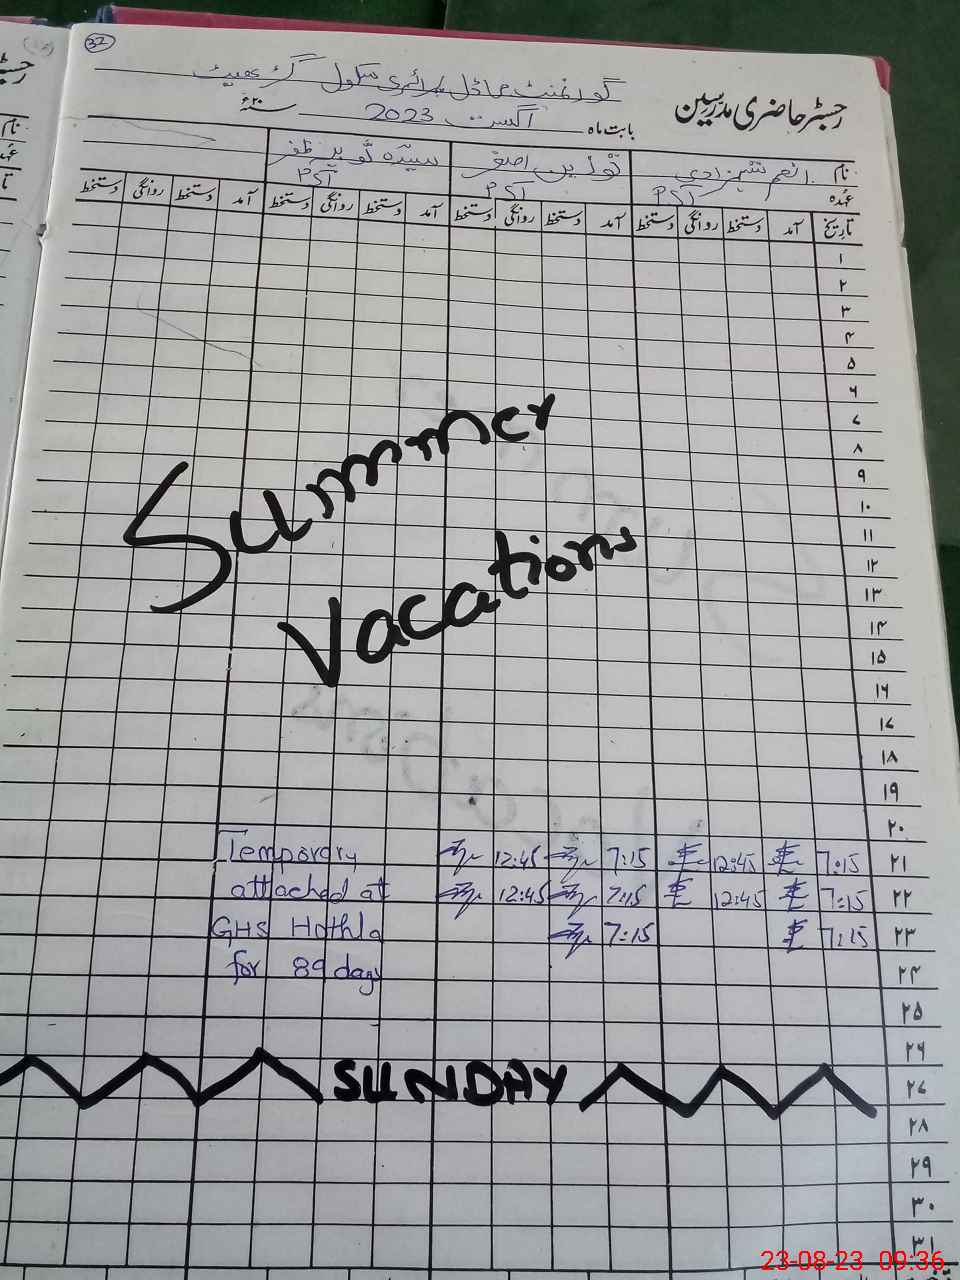 32
رجسٹر حاضری مدرسین
گورنمنٹ ماڈل پرائمری سکول
بابت ماہ اگست 2023 ۲۰ء
نام انعم شہزادی نورین اصغر سیدہ ثوبیہ ظفر
عہدہ PST PST PST
تاریخ آمد دستخط روانگی دستخط آمد دستخط روانگی دستخط آمد دستخط روانگی دستخط آمد دستخط روانگی دستخط
۱
۲
۳
۴
۵
۶
۷
۸
۹
۱۰
۱۱
۱۲
۱۳
۱۴
۱۵
۱۶
۱۷
۱۸
۱۹
۲۰
Summer
Vacations
۲۱ 7:15 12:45 7:15 12:45 Temporary
۲۲ 7:15 12:45 7:15 12:45 attached at
۲۳ 7:15 7:15 GHS Hothla
۲۴ for 89 days
۲۵
۲۶
۲۷ SUNDAY
۲۸
۲۹
۳۰
۳۱
23-08-23 09:36